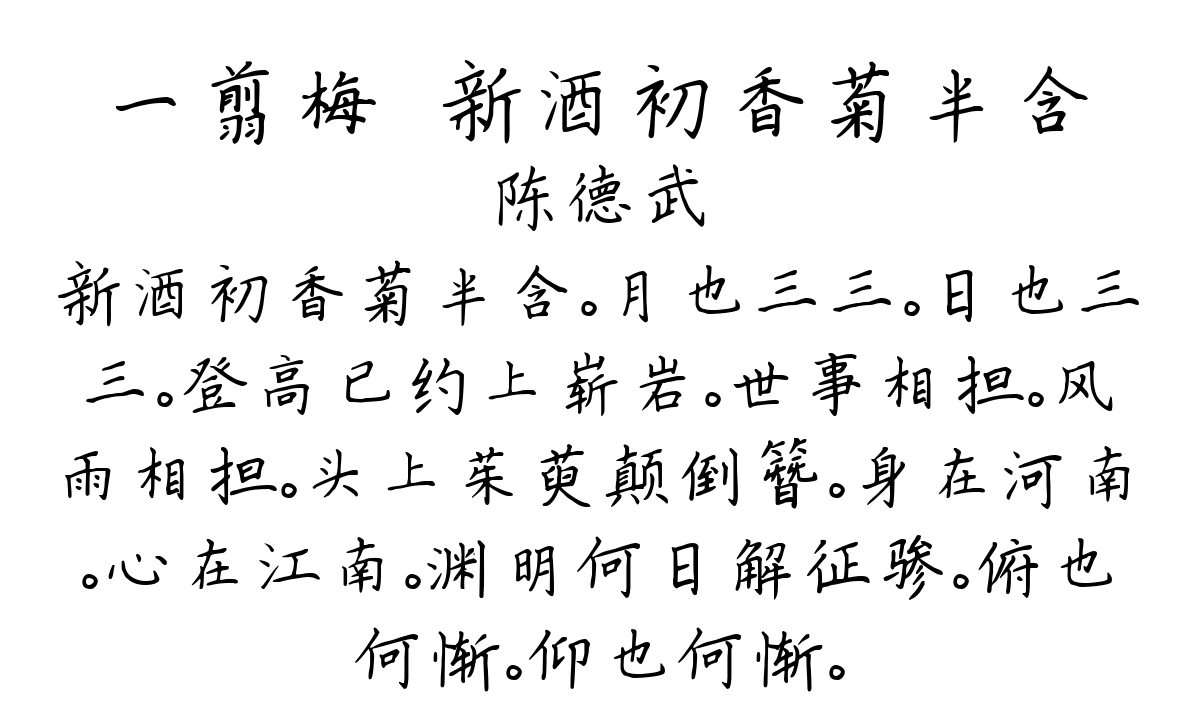 一翦梅 新酒初香菊半含
陈德武
新酒初香菊半含。月也三三。日也三
三。登高已约上崭岩。世事相担。风
雨相担。头上茱萸颠倒簪。身在河南
。心在江南。渊明何日解征骖。俯也
何惭。仰也何惭。